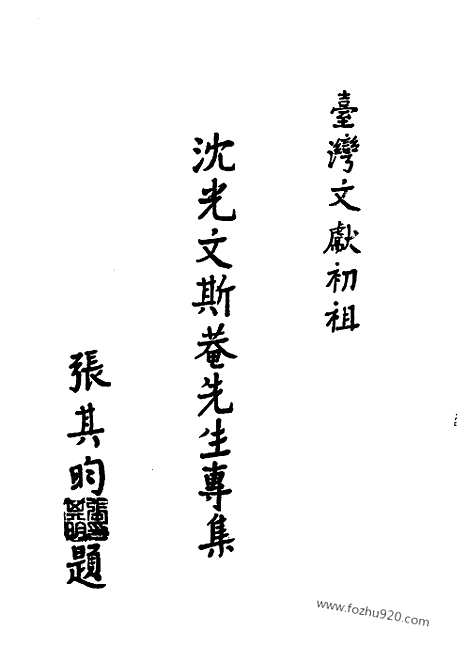 臺灣文獻初祖
沈光文斯菴先生專集
張其昀
題
www.fozhu920.com